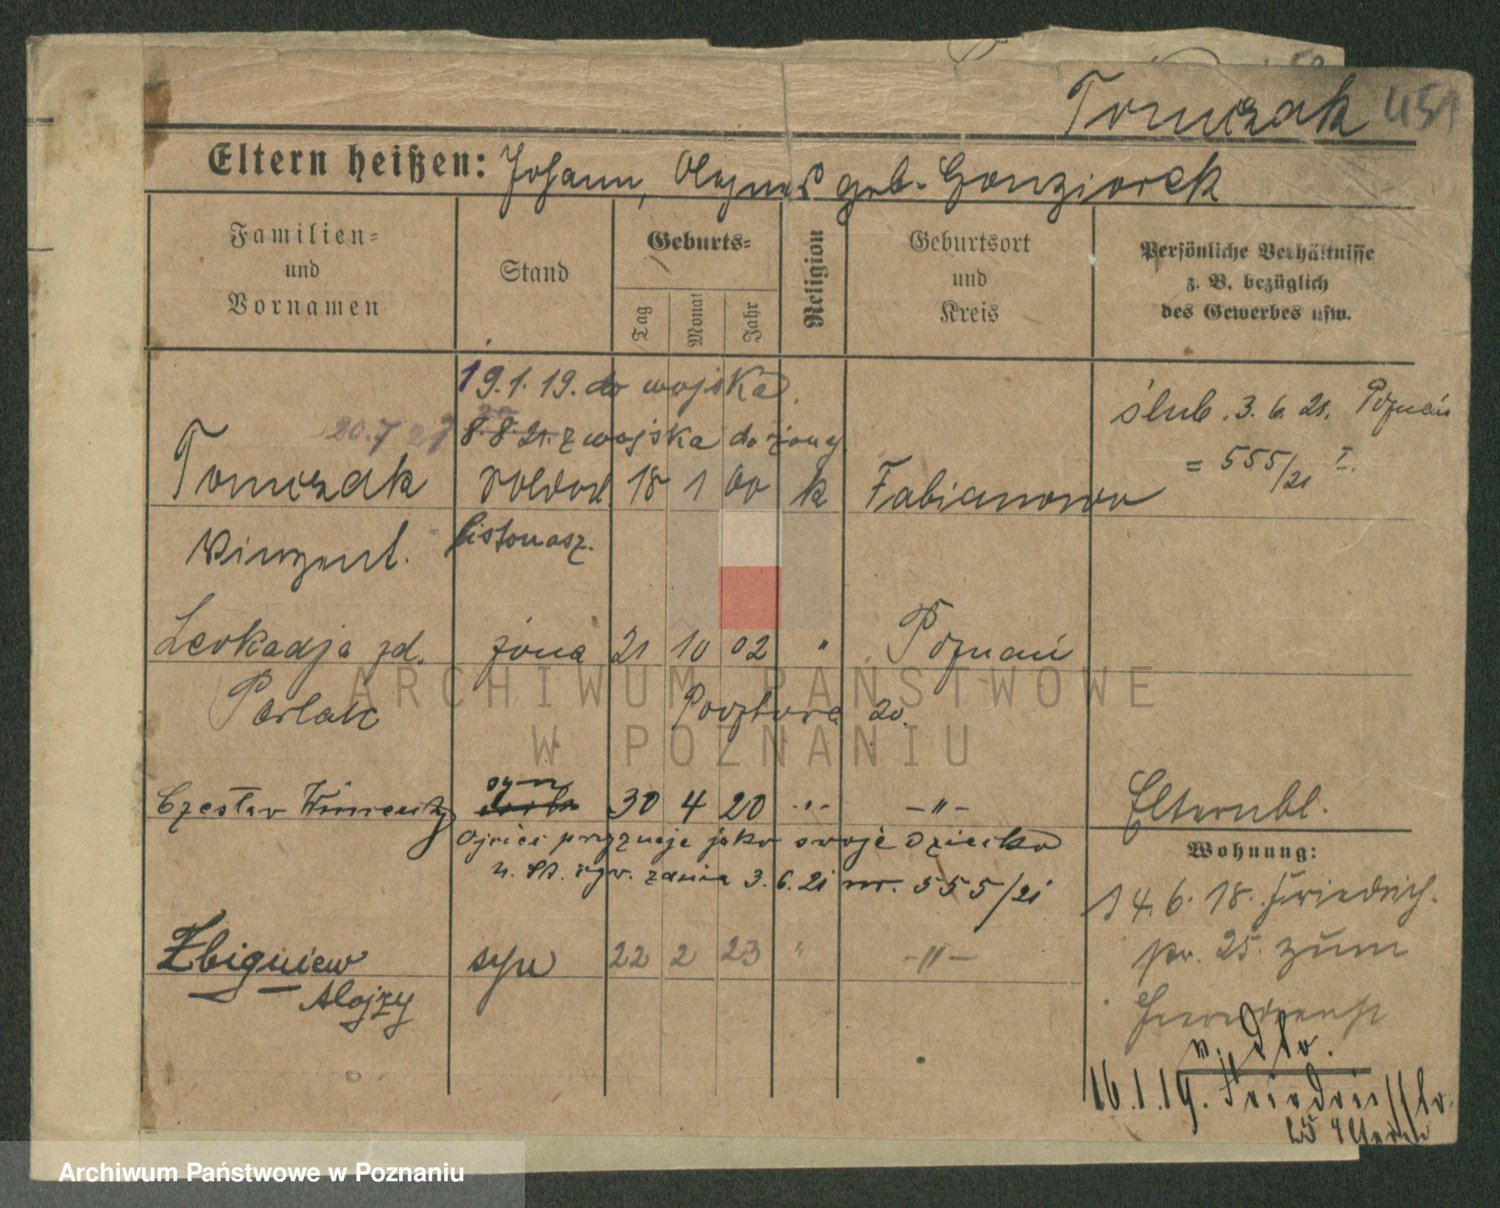 Tomczak 451
Eltern heißen: Johann, Agnes geb. Gonziorek
Familien= und Vornamen
Stand
Geburts=
Tag Monat Jahr
Religion
Geburtsort und Kreis
Persönliche Verhältnisse z. B. bezüglich des Gewerbes usw.
19.1.19. do wojska.
20.7.27 8.8.21. z wojska do żony
ślub. 3.6.21. Poznań
= 555/21 I.
Tomczak 18 1 00 k Fabianowo
Vinzent. listonosz.
Leokadja zd. żona 21 10 02 " Poznań
Parlak 20.
Czesław Wincenty syn 30 4 20 -"- -"-
Ojciec przyznaje jako swoje dziecko
3.6.21 nr. 555/21
Zbigniew syn 22 2 23 " -"-
Alojzy
Elternbl.
Wohnung:
14.6.18. Friedrich-
str. 25. zum
16.1.19. Friedrichstr.
25 Eltern
ARCHIWUM PAŃSTWOWE
W POZNANIU
Archiwum Państwowe w Poznaniu